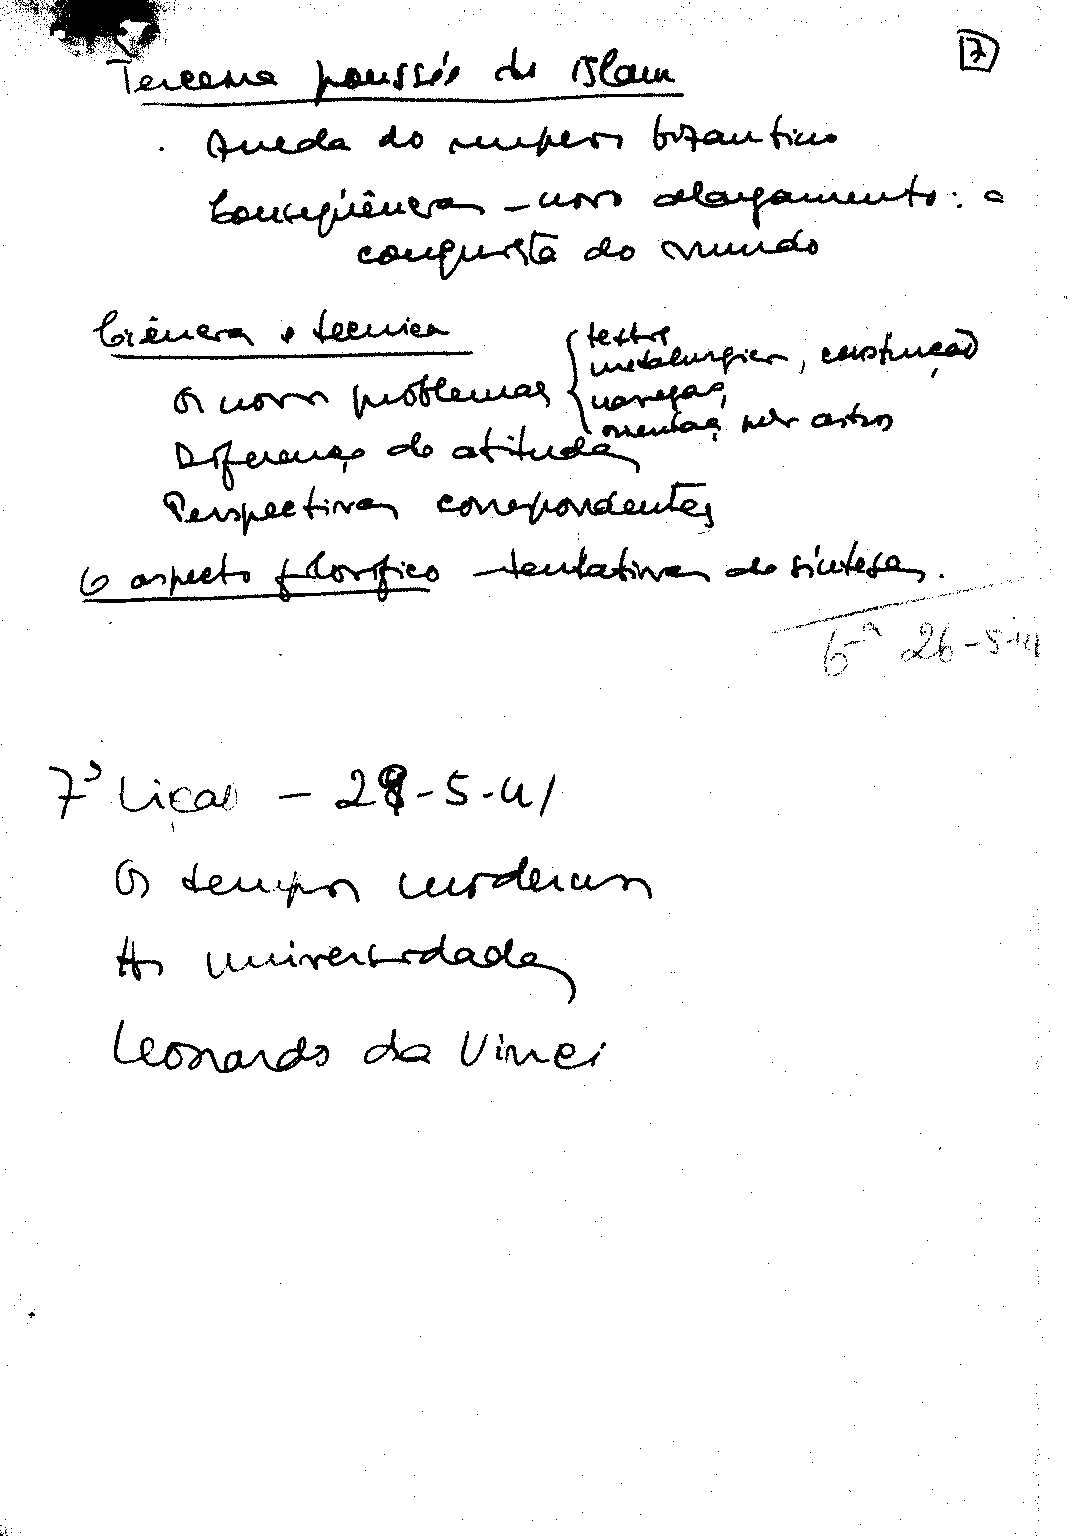 7
Terceira poussée do Islam
. Queda do império bizantino
Conseqüências – novo alargamento: a
conquista do mundo
Ciência e técnica
Os novos problemas { textil
metalurgica, construção
navegaç,
orientaç, por astros
Diferença de atitudes
Perspectivas correspondentes
O aspecto filosófico – tentativas de síntese.
6ª 26-5-41
7ª Lição – 28-5-41
Os tempos modernos
As universidades
Leonardo da Vinci